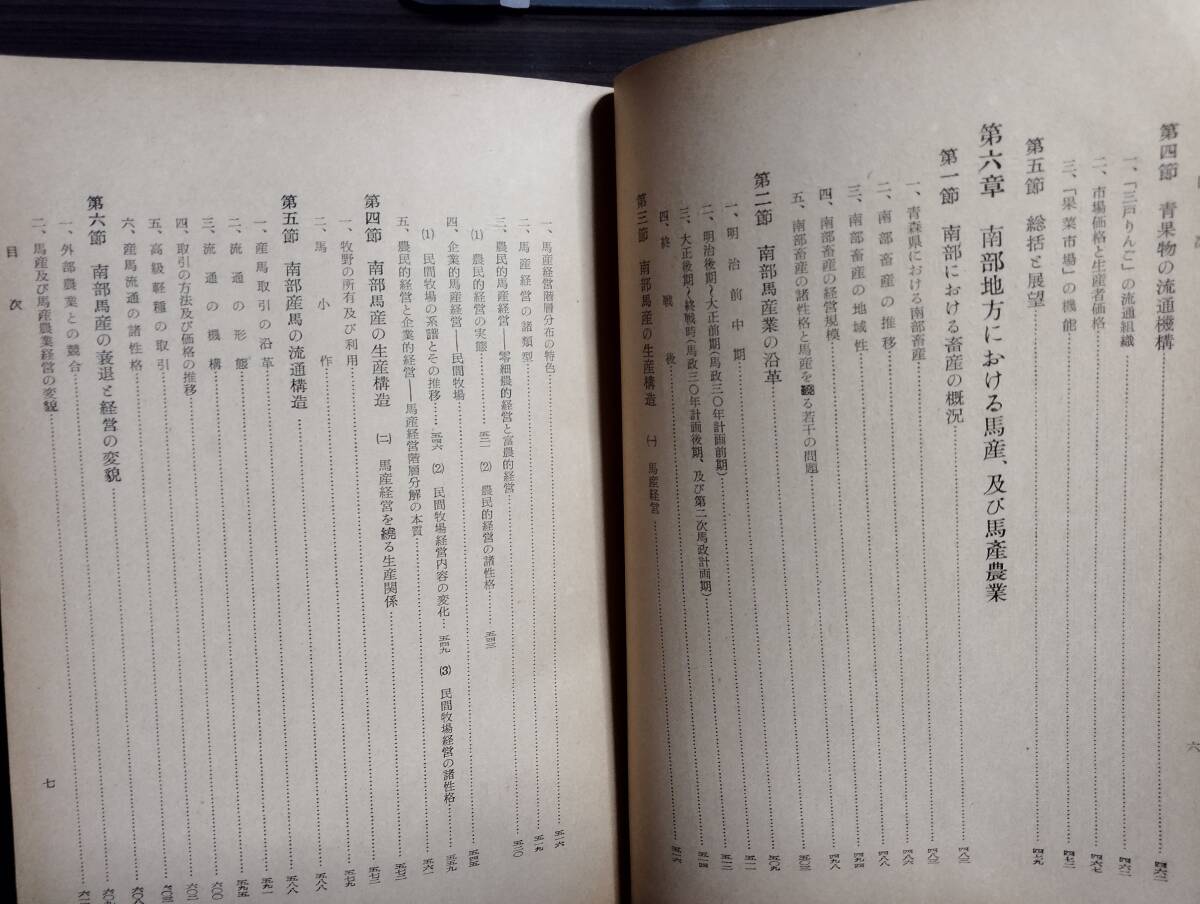 第四節 青果物の流通機構 四六二
一、「三戸りんご」の流通組織 四六二
二、市場価格と生産者価格 四六七
三、「果菜市場」の機能 四七二
第五節 総括と展望 四七九
第六章 南部地方における馬産、及び馬産農業
第一節 南部における畜産の概況 四八三
一、青森県における南部畜産 四八三
二、南部畜産の推移 四八六
三、南部畜産の地域性 四八八
四、南部畜産の経営規模 四九四
五、南部畜産の諸性格と馬産を繞る若干の問題 五〇三
第二節 南部馬産業の沿革 五〇九
一、明治前中期
二、明治後期〜大正前期(馬政三〇年計画前期)
三、大正後期〜終戦時(馬政三〇年計画後期、及び第二次馬政計画期) 五一四
四、終戦後 五一六
第三節 南部馬産の生産構造 ㈠ 馬産経営
六
一、馬産経営階層分布の特色 五一六
二、馬産経営の諸類型 五一九
三、農民的馬産経営——零細農的経営と富農的経営 五三〇
⑴ 農民的経営の実態 五三一 ⑵ 農民的経営の諸性格 五四三
四、企業的馬産経営——民間牧場 五四五
⑴ 民間牧場の系譜とその推移 五四六 ⑵ 民間牧場経営内容の変化 五四九 ⑶ 民間牧場経営の諸性格 五五九
五、農民的経営と企業的経営——馬産経営階層分解の本質 五六一
第四節 南部馬産の生産構造 ㈡ 馬産経営を繞る生産関係 五七二
一、牧野の所有及び利用 五七二
二、馬小作 五七九
第五節 南部産馬の流通構造 五八八
一、産馬取引の沿革 五八八
二、流通の形態 五九一
三、流通の機構 五九五
四、取引の方法及び価格の推移 六〇〇
五、高級軽種の取引 六〇二
六、産馬流通の諸性格
第六節 南部馬産の衰退と経営の変貌 六〇八
一、外部農業との競合
二、馬産及び馬産農業経営の変貌
目次
七